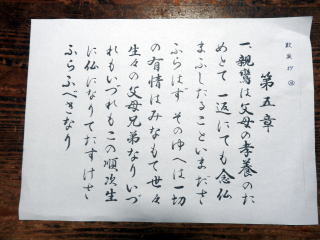 歎異抄
第五章
一、親鸞は父母の孝養のた
めとて 一返にても念仏
まふしたること いまださ
ふらはず そのゆへは 一切
の有情はみなもて世々
生々の父母兄弟なり いづ
れもいづれもこの順次生
に仏になりてたすけさ
ふらふべきなり